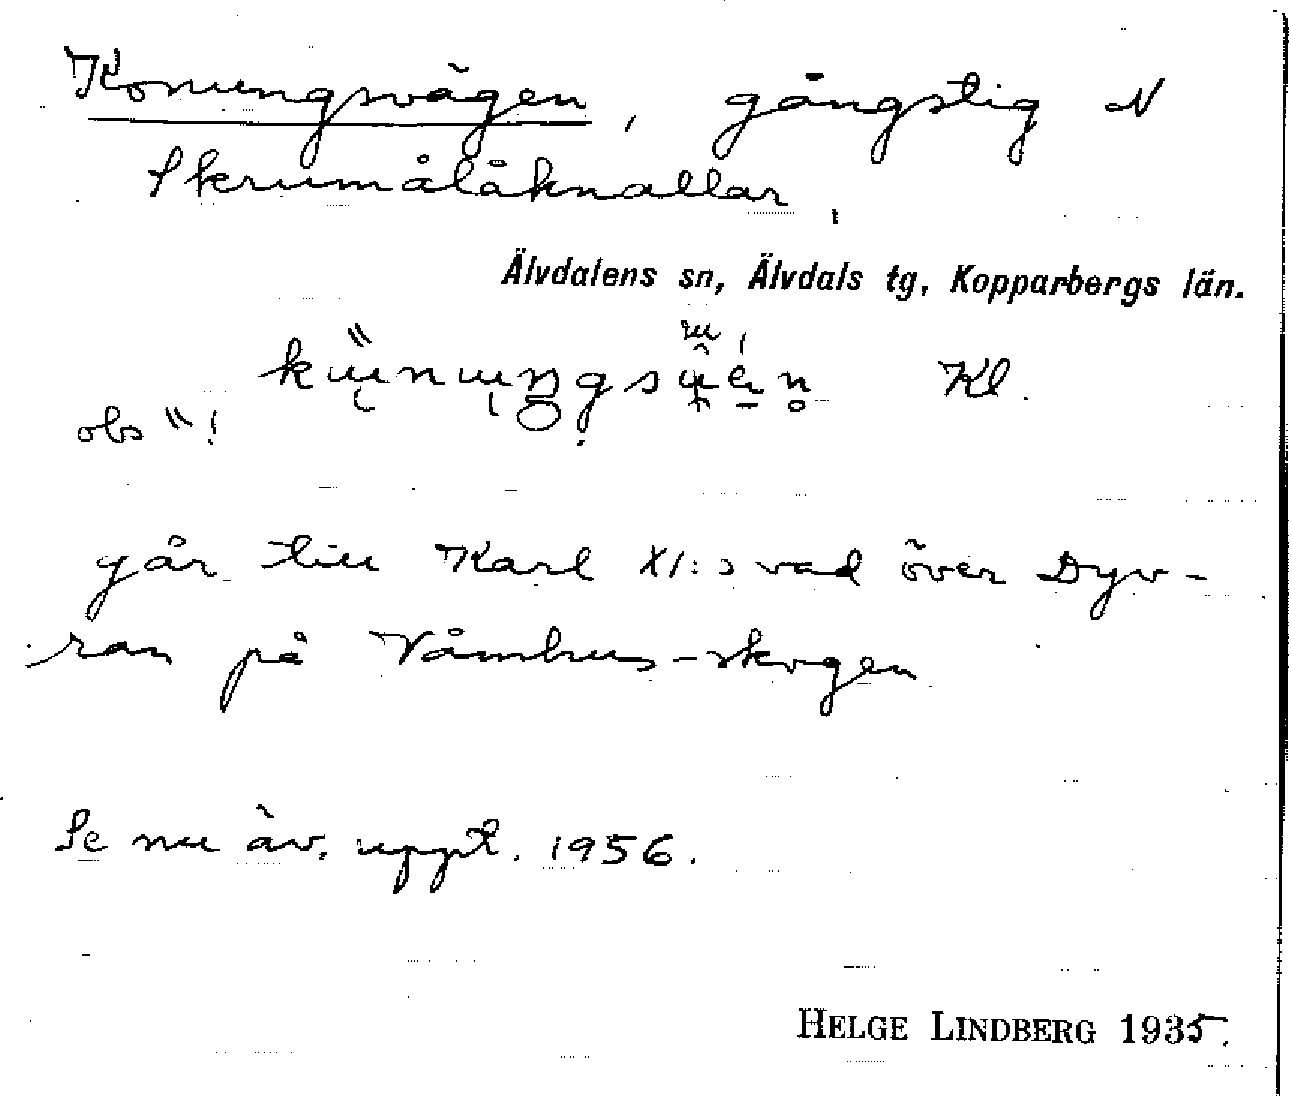 Konungsvägen, gångstig N
Skrumålåknallar,
Älvdalens sn, Älvdals tg, Kopparbergs län.
Kl.
obs "!
går till Karl XI:s vad över Dyv-
ran på Våmhus-skogen
Se nu äv. uppt. 1956.
HELGE LINDBERG 1935.